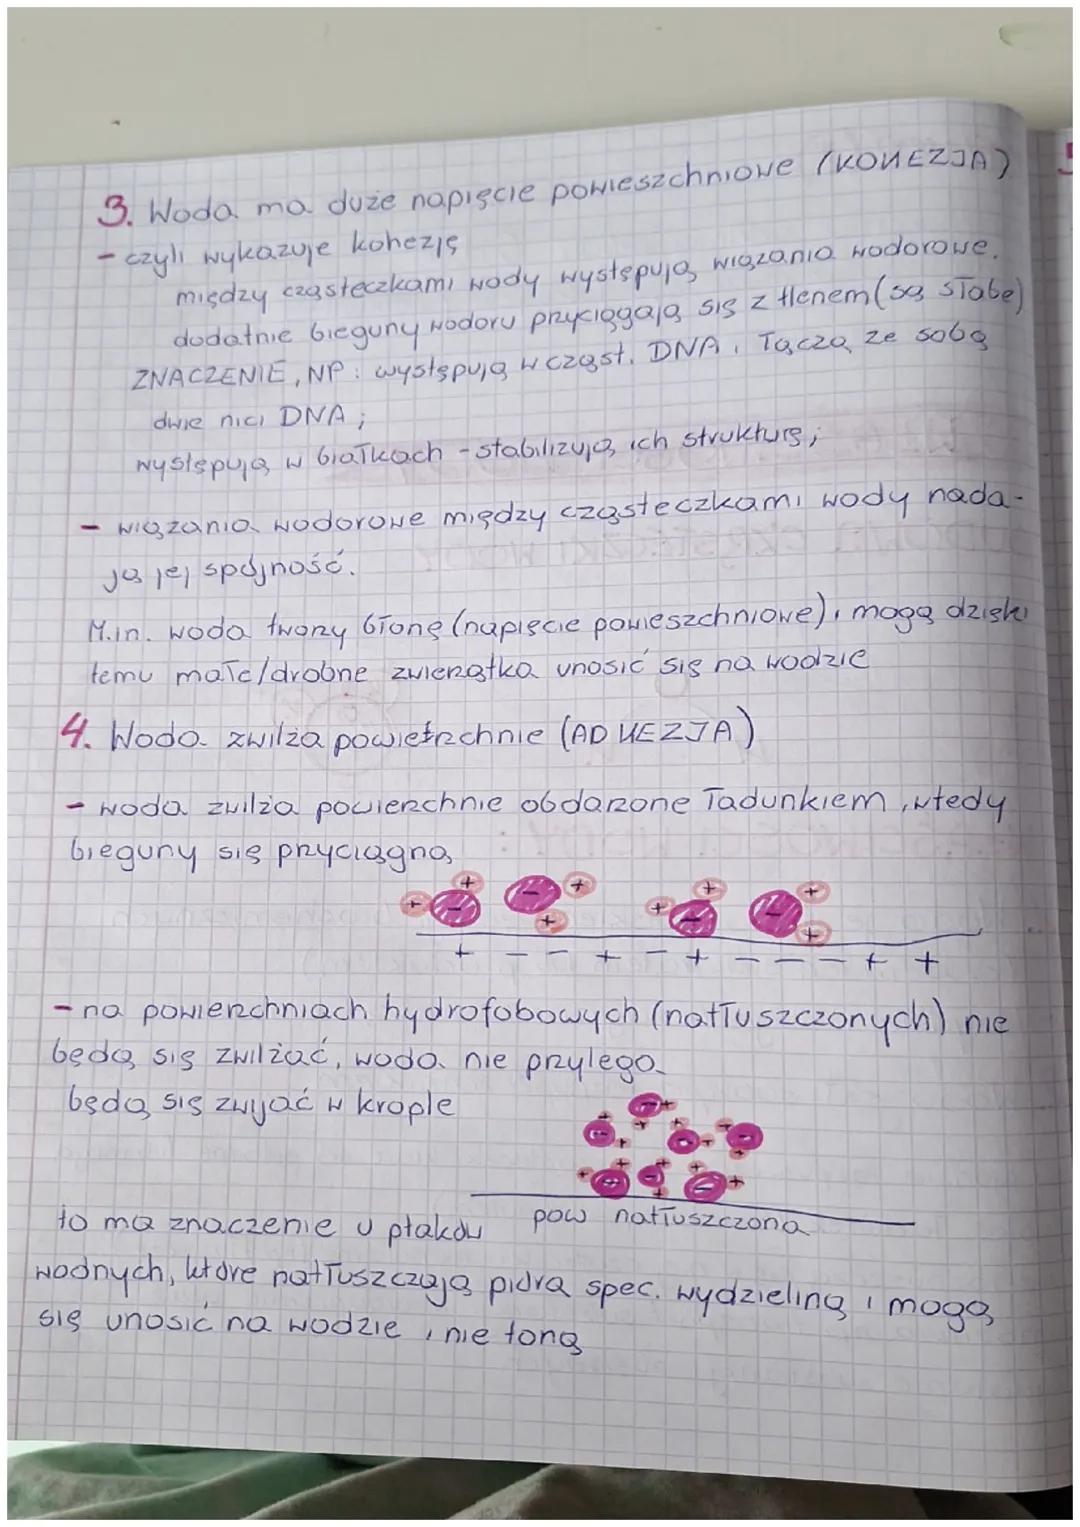 3. Woda ma duże napięcie powieszchniowe (KOHEZJA)
- czyli wykazuje kohezję
między cząsteczkami wody występują wiązania wodorowe.
dodatnie bieguny wodoru przyciągają się z tlenem (są słabe)
ZNACZENIE, NP: występują w cząst. DNA i łączą ze sobą
dwie nici DNA;
występują w białkach - stabilizują ich strukturę;
- wiązania wodorowe między cząsteczkami wody nada-
ją jej spójność.
M.in. woda tworzy błonę (napięcie powieszchniowe) i mogą dzięki
temu małe/drobne zwierzątka unosić się na wodzie
4. Woda zwilża powierzchnie (ADHEZJA)
- woda zwilża powierzchnie obdarzone ładunkiem, wtedy
bieguny się przyciągną
+ + - + + + + - + - + +
+ - - + - + - - - + +
- na powierzchniach hydrofobowych (natłuszczonych) nie
będą się zwilżać, woda nie przylega
będą się zwijać w krople
to ma znaczenie u ptaków
pow natłuszczona
wodnych, które natłuszczają pióra spec. wydzieliną i mogą
się unosić na wodzie i nie toną